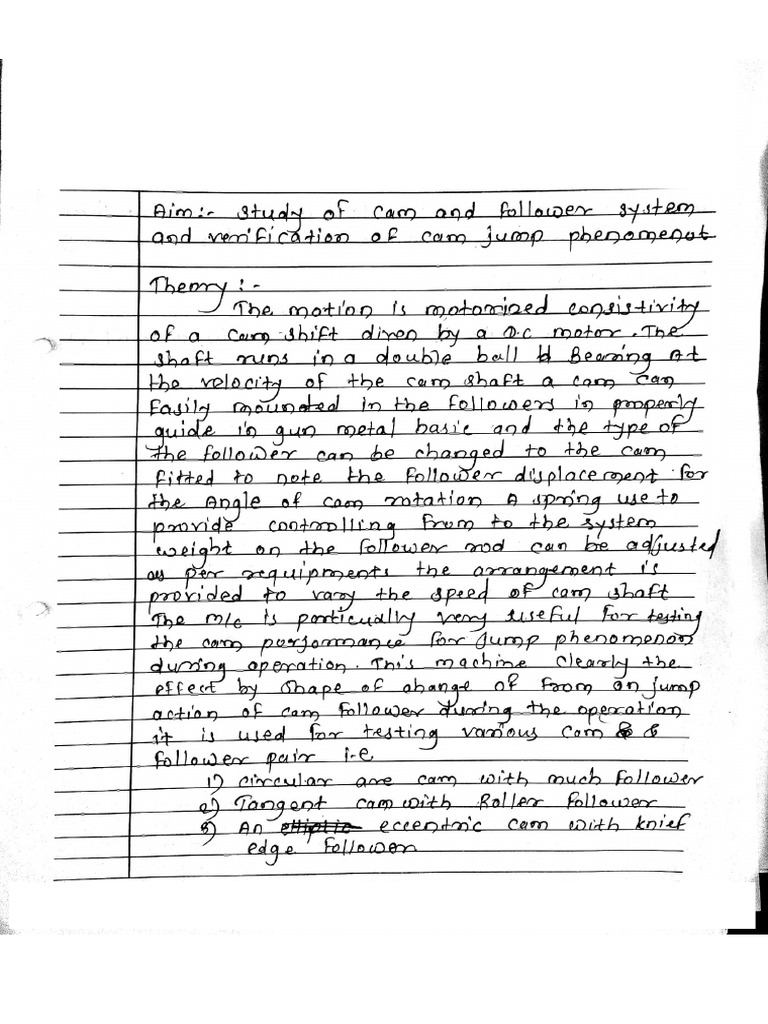 Aim:- study of cam and follower system
and verification of cam jump phenomenot
Theory :-
The motion is motorized consistivity
of a cam shift diren by a D.C motor. The
shaft runs in a double ball Bearing At
the velocity of the cam shaft a cam can
Easily mounted in the followers in properly
guide in gun metal basic and the type of
the follower can be changed to the cam
fitted to note the follower displacement for
the Angle of cam rotation A spring use to
provide controlling from to the system
weight on the follower rod can be adjusted
as per requipments the arrangement is
provided to vary the speed of cam shaft
The m/c is particually very useful for testing
the cam performance for jump phenomenon
during operation. This machine clearly the
effect by shape of change of from on jump
action of cam follower during the operation
it is used for testing various cam &
follower pair i.e
1) circular are cam with much follower
2) Tangent cam with Roller follower
3) An elliptic eccentric cam with knief
edge follower